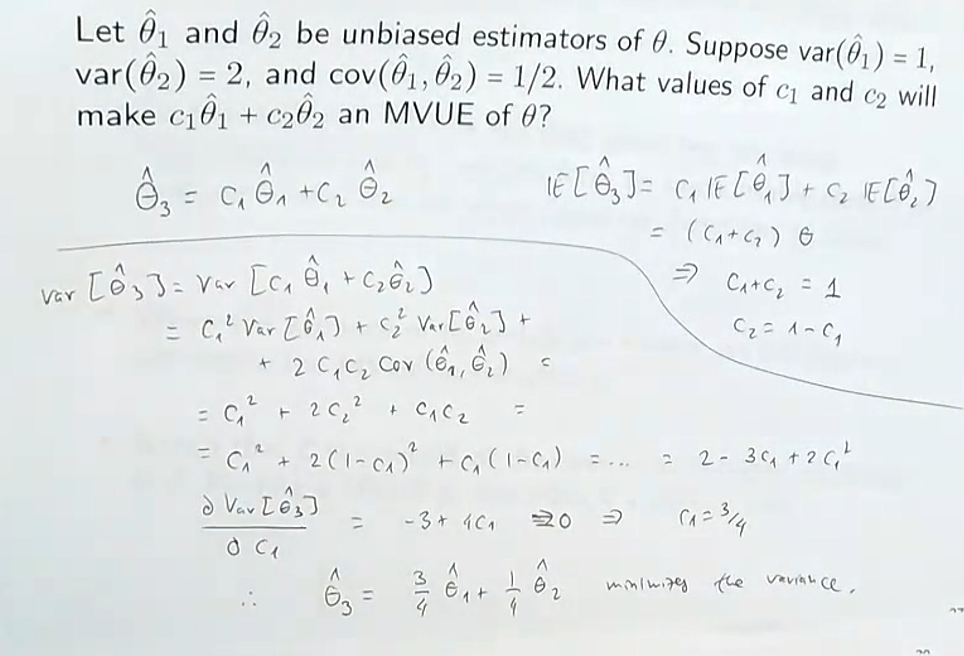 Let θ̂₁ and θ̂₂ be unbiased estimators of θ. Suppose var(θ̂₁) = 1,
var(θ̂₂) = 2, and cov(θ̂₁, θ̂₂) = 1/2. What values of c₁ and c₂ will
make c₁θ̂₁ + c₂θ̂₂ an MVUE of θ?
Θ̂₃ = C₁ Θ̂₁ + C₂ Θ̂₂
𝔼[Θ̂₃] = C₁ 𝔼[Θ̂₁] + C₂ 𝔼[Θ̂₂]
= (C₁+C₂) Θ
⇒ C₁+C₂ = 1
C₂ = 1-C₁
Var [Θ̂₃] = Var [C₁ Θ̂₁ + C₂Θ̂₂]
= C₁² Var [Θ̂₁] + C₂² Var[Θ̂₂] +
+ 2 C₁C₂ Cov (Θ̂₁, Θ̂₂) =
= C₁² + 2C₂² + C₁C₂ =
= C₁² + 2(1-C₁)² + C₁(1-C₁) = ... = 2 - 3C₁ + 2C₁²
∂ Var [Θ̂₃] / ∂ C₁ = -3 + 4C₁ = 0 ⇒ C₁ = 3/4
∴ Θ̂₃ = 3/4 Θ̂₁ + 1/4 Θ̂₂ minimizes the variance.